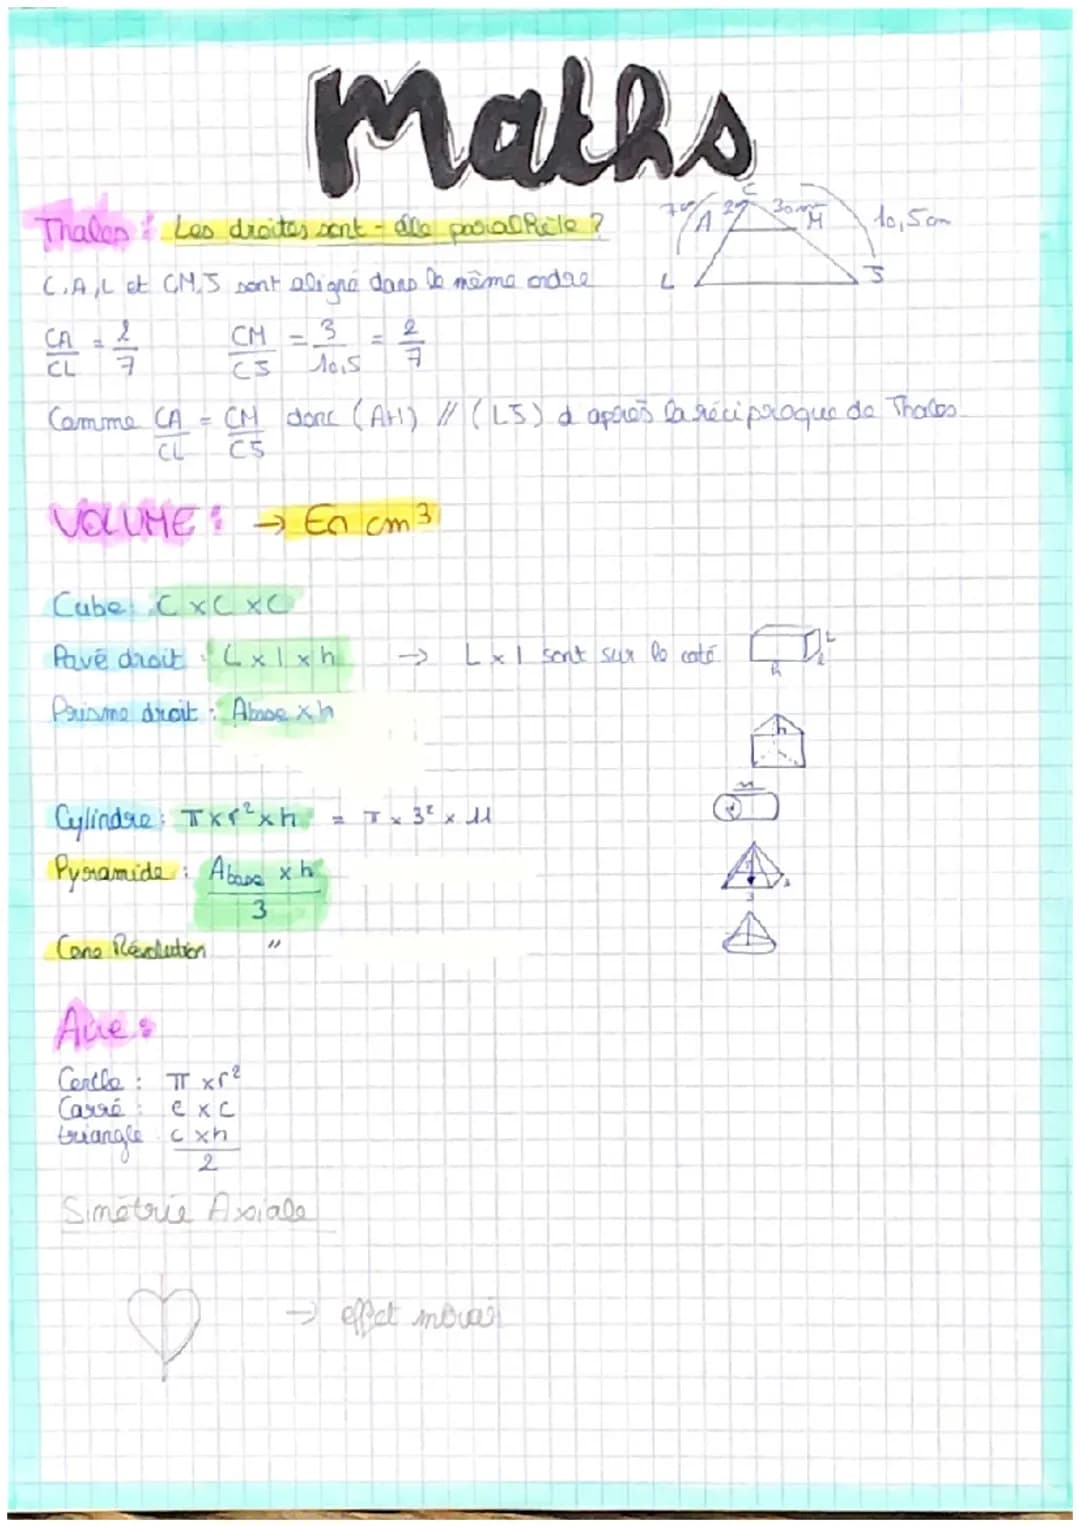 Maths
Thales : Les droites sont - elle parallèle ?
7cm A 2cm C 3cm M 10,5cm
L J
C,A,L et C,M,J sont aligné dans le même ordre
CA/CL = 2/7 CM/CJ = 3/10,5 = 2/7
Comme CA/CL = CM/CJ donc (AM) // (LJ) d après la réciproque de Thales
VOLUME : → En cm³
Cube : C x C x C
Pavé droit : L x l x h → L x l sont sur le coté
L l h
Prisme droit : Abase x h
h
Cylindre : π x r² x h = π x 3² x 11
Pyramide : Abase x h / 3
3
Cone Révolution "
Aire :
Cercle : π x r²
Carré : c x c
triangle c x h / 2
Simétrie Axiale
→ effet miroir